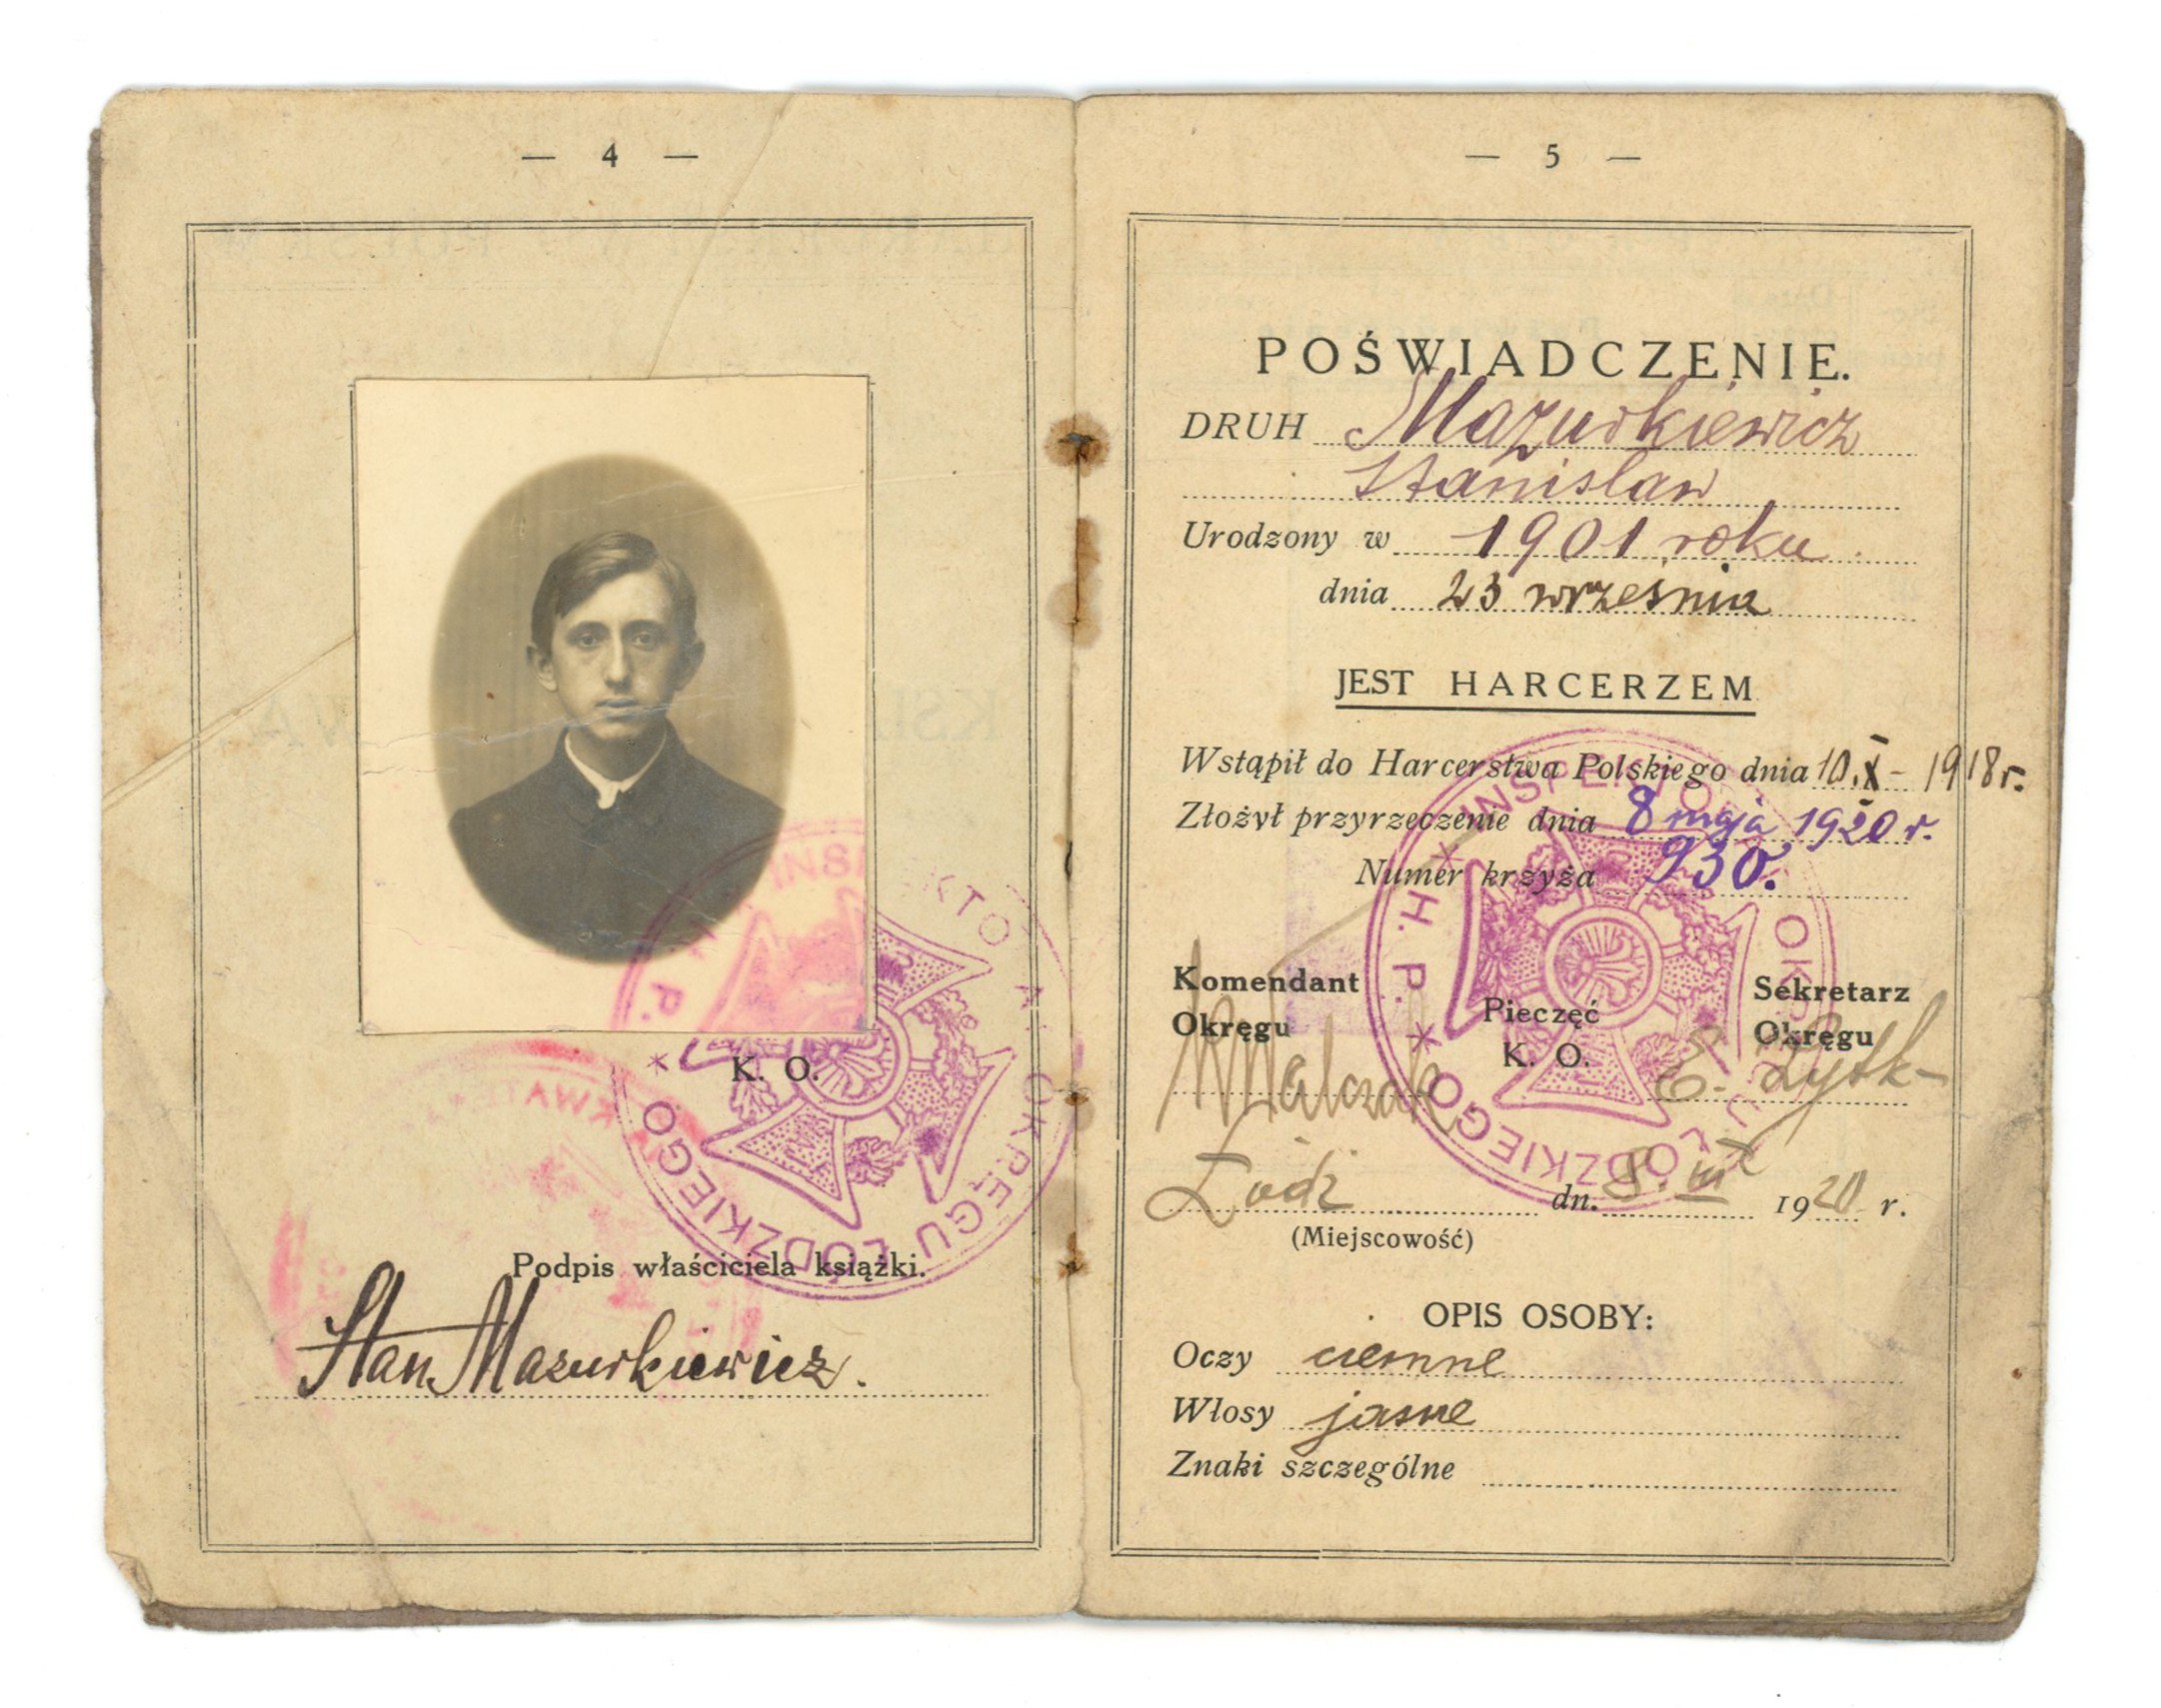 — 4 —
K. O.
* INSPEKTORAT OKRĘGU ŁÓDZKIEGO * H. P.
Podpis właściciela książki.
Stan Mazurkiewicz.
— 5 —
POŚWIADCZENIE.
DRUH Mazurkiewicz
Stanisław
Urodzony w 1901 roku
dnia 23 września
JEST HARCERZEM
Wstąpił do Harcerstwa Polskiego dnia 10.X – 1918 r.
Złożył przyrzeczenie dnia 8 maja 1920 r.
Numer krzyża 930.
* INSPEKTORAT OKRĘGU ŁÓDZKIEGO * H. P.
Komendant Okręgu
Pieczęć K. O.
Sekretarz Okręgu
Łódź dn. 8. 1920 r.
(Miejscowość)
OPIS OSOBY:
Oczy ciemne
Włosy jasne
Znaki szczególne